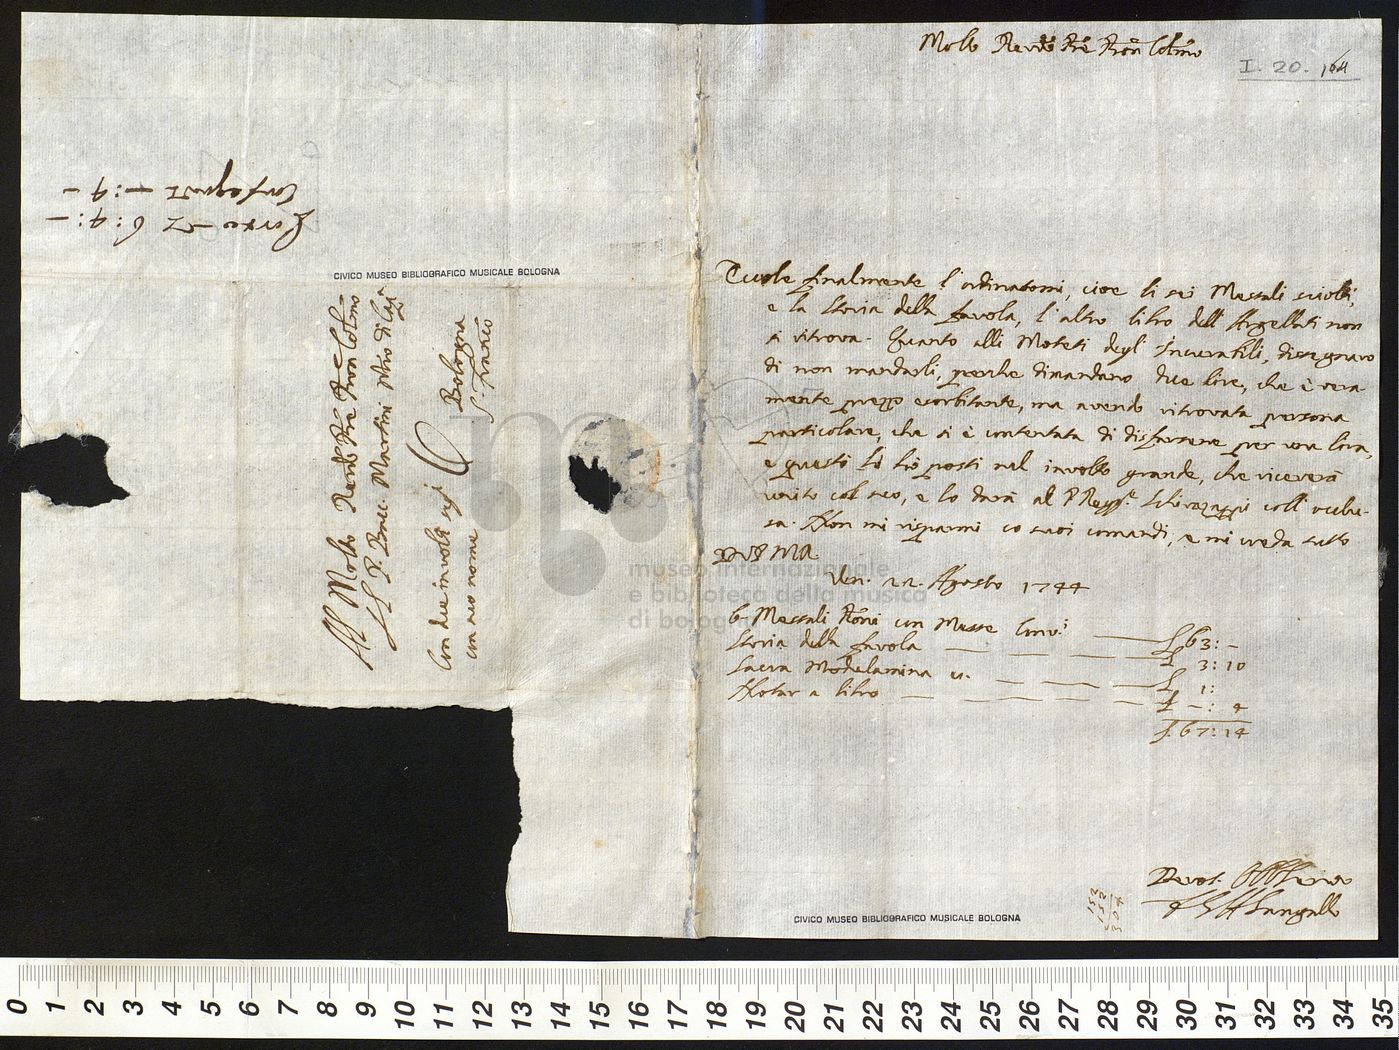 Molto Rendo Pre Pron Colmo
I. 20. 164
finalmente l'ordinatomi, cioè li sei Messali sciolti,
e la Storia della favola, l'altro libro dell'Argellati non
si ritrova. Quanto alli Moteti degl'Incurabili, disegnavo
di non mandarli, perche dimandano due lire, che è vera-
mente prezzo esorbitante, ma avendo ritrovata persona
particolare, che si è contentata di disfarsene per una lira,
e questi li hò posti nel involto grande, che riceverà
unito col suo, e lo darà al P Regg.e coll'acclu-
sa. Non mi risparmi co suoi comandi, e mi creda tutto
Ven. 22. Agosto 1744
6 Messali Rōni con Messe £ 63: -
Storia della favola £ 3: 10
Sacra Modulamina £ 1:
Notar a libro £ -: 4
£ 67: 14
Devot.
Sangallo
152
152
304
CIVICO MUSEO BIBLIOGRAFICO MUSICALE BOLOGNA
Al Molto Rendo Pre Pron Colmo
Il P. Martini Mro di Cap
Bologna
S. Franco
Con due involti
con suo nome
CIVICO MUSEO BIBLIOGRAFICO MUSICALE BOLOGNA
museo internazionale
e biblioteca della musica
di bologna
0 1 2 3 4 5 6 7 8 9 10 11 12 13 14 15 16 17 18 19 20 21 22 23 24 25 26 27 28 29 30 31 32 33 34 35